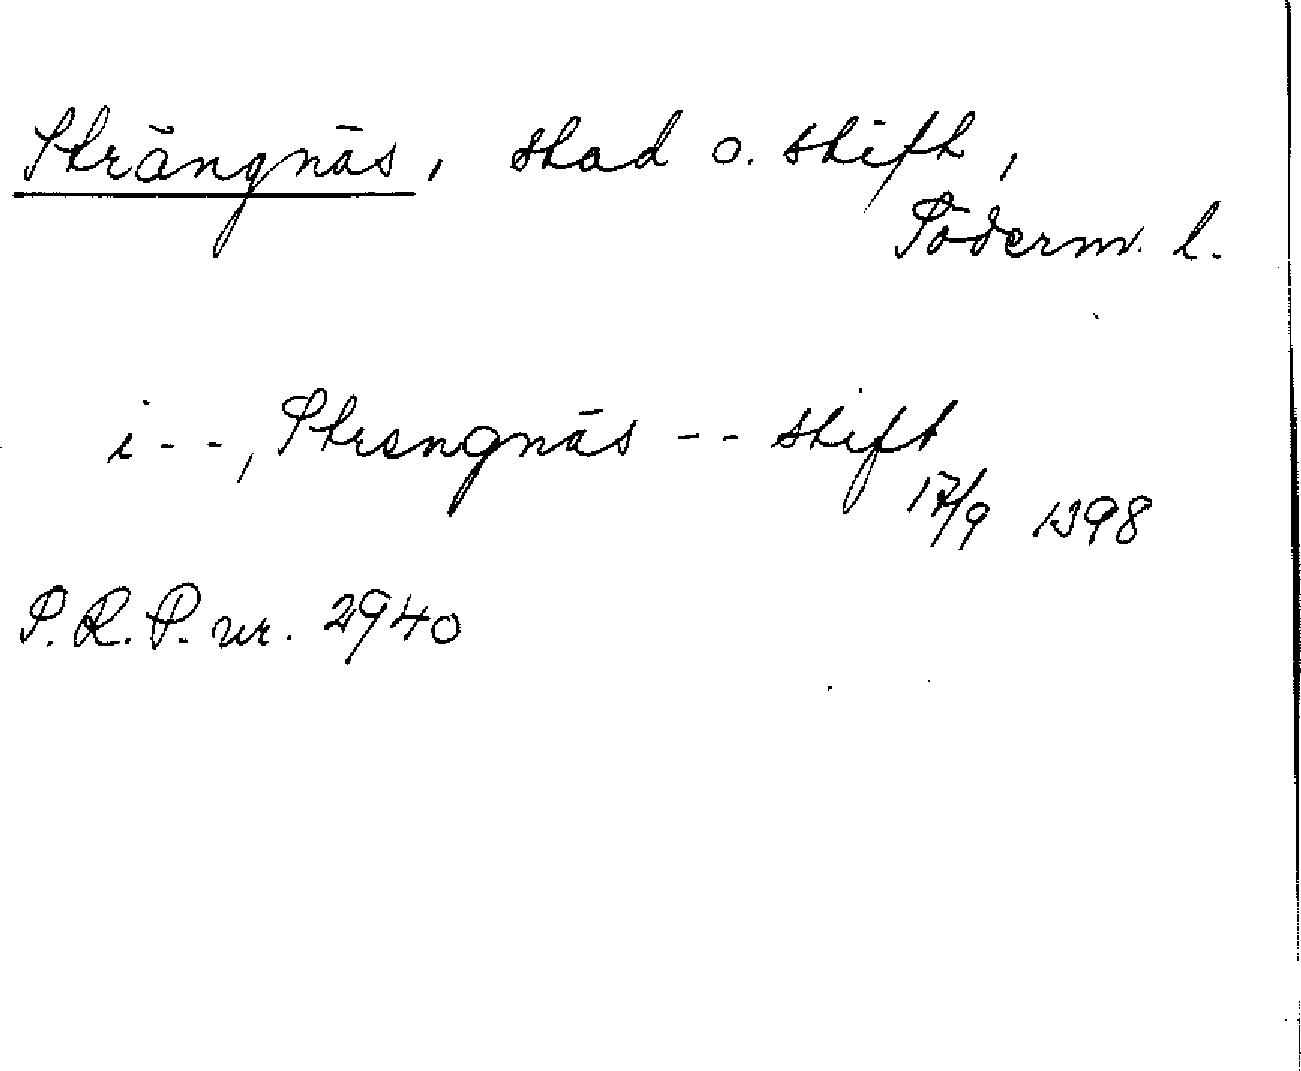 Strängnäs, stad o. stift,
Söderm. l.
i - -, Strengnäs - - stift
17/9 1398
S.R.P. nr. 2940